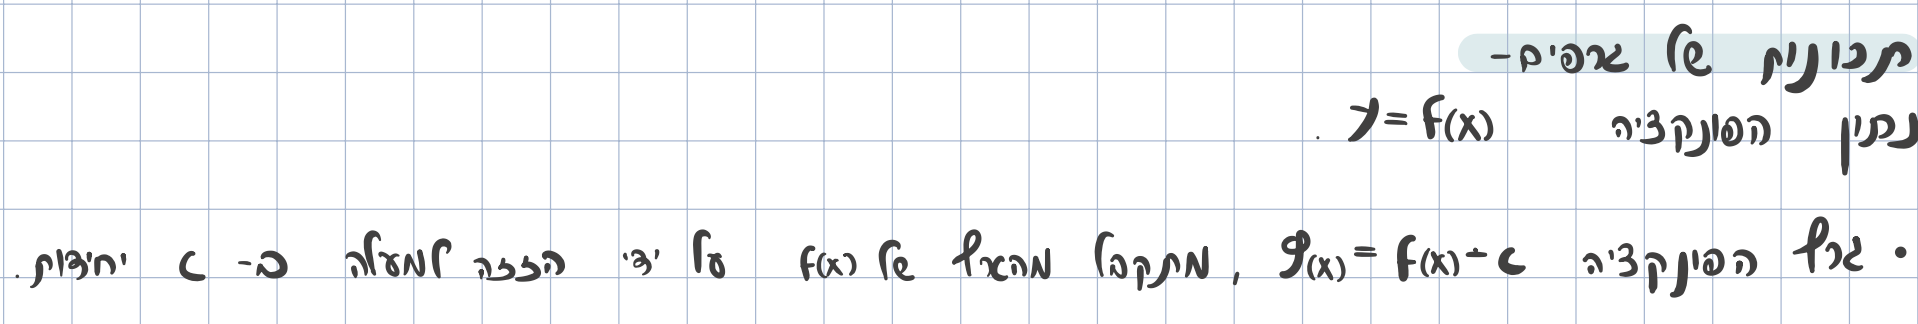 תכונות של גרפים-
נתון הפונקציה y = f(x) .
• גרף הפונקציה g(x) = f(x)+c , מתקבל מהגרף של f(x) על ידי הזזה למעלה ב- c יחידות.